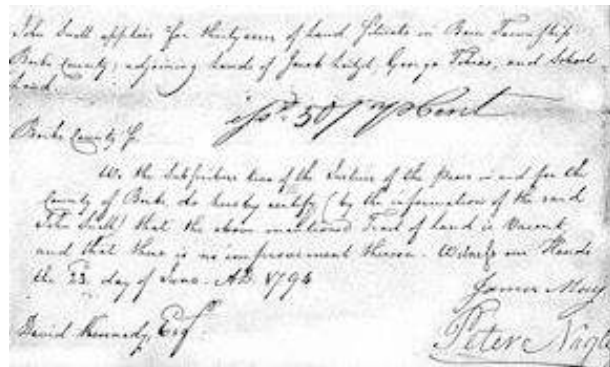 John Snell applies for thirty acres of Land Situate in Bern Township
Berks County; adjoining Lands of Jacob George Tobias, and School
Land
50 p Cent
Berks County Ss
We the Subscribers two of the Justices of the Peace in and for the
County of Berks do hereby certify (by the information of the said
John Snell) that the above mentioned Tract of Land is Vacant
and that there is no improvement thereon. Witness our Hands
the 23 day of June AD. 1794
James May
David Kennedy, Esqr
Peter Nagle